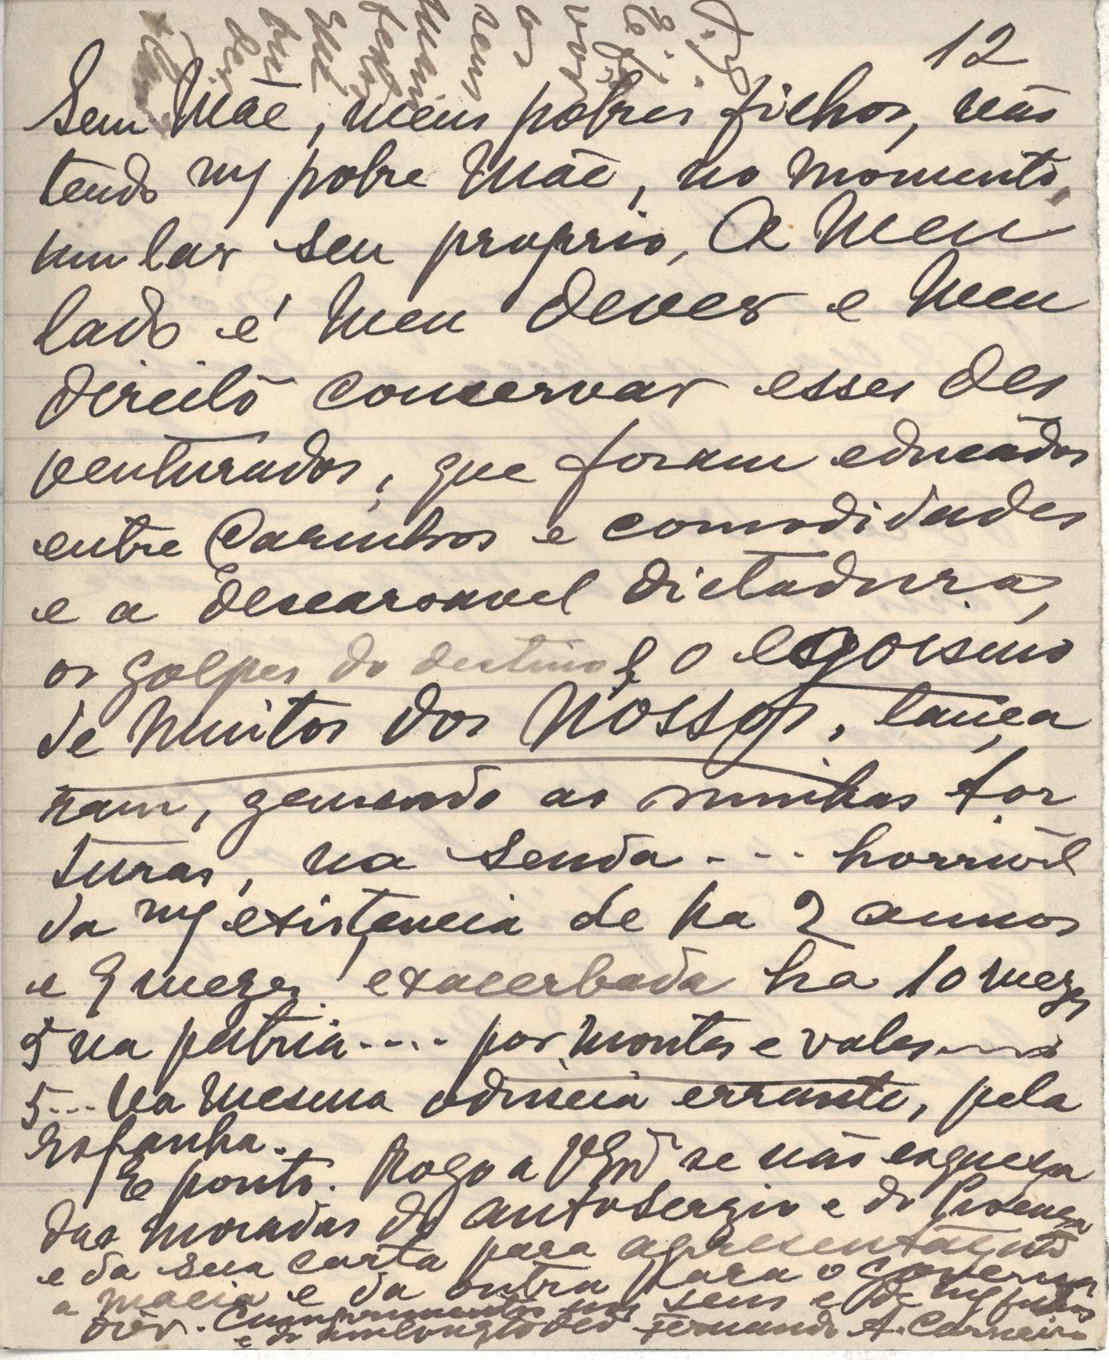 12
Sem Mãe, meus pobres filhos, não
tendo mª pobre Mãe, no momento,
um lar seu proprio, a meu
lado é meu dever e meu
direito conservar esses des
venturados, que foram educados
entre carinhos e comodidades
e a descaroavel dictadura,
os golpes do destino e o egoismo
de muitos dos nossos, lança
ram, gemendo as minhas tor
turas, na senda --- horrivel
da mª existencia de ha 2 annos
e 9 mezes exacerbada ha 10 mezes
5 na patria.... por montes e vales
5... na mesma odisseia errante, pela
Espanha.
E ponto. Rogo a V. Exª se não esqueça
das moradas do Antº Sergio e do Proença
e da sua carta para apresentação
e da outra para o governo
seus e de mª filhos
Cumprimentos
Fernando A. Carneiro